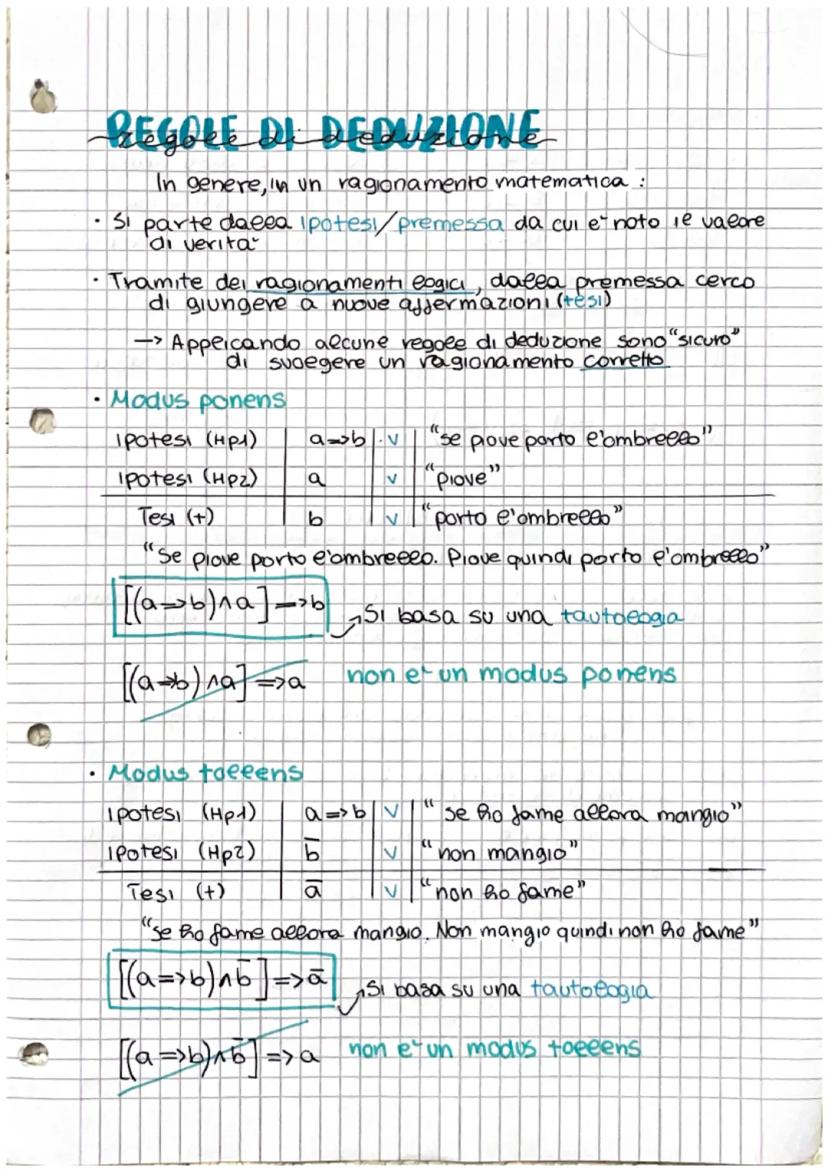 REGOLE DI DEDUZIONE
regole di deduzione
In genere, in un ragionamento matematica :
· Si parte dalla ipotesi/premessa da cui è noto il valore
di verità
· Tramite dei ragionamenti logici, dalla premessa cerco
di giungere a nuove affermazioni (tesi)
→ Applicando alcune regole di deduzione sono "sicuro"
di svolgere un ragionamento corretto
· Modus ponens
Ipotesi (Hp1) a⇒b · V "se piove porto l'ombrello"
Ipotesi (Hp2) a V "piove"
Tesi (t) b V "porto l'ombrello"
"Se piove porto l'ombrello. Piove quindi porto l'ombrello"
[(a⇒b)∧a]⇒b Si basa su una tautologia
[(a⇒b)∧a]⇒a non è un modus ponens
· Modus tollens
Ipotesi (Hp1) a⇒b V "se ho fame allora mangio"
Ipotesi (Hp2) b̅ V "non mangio"
Tesi (t) a̅ V "non ho fame"
"se ho fame allora mangio. Non mangio quindi non ho fame"
[(a⇒b)∧b̅]⇒a̅ Si basa su una tautologia
[(a⇒b)∧b̅]⇒a non è un modus tollens